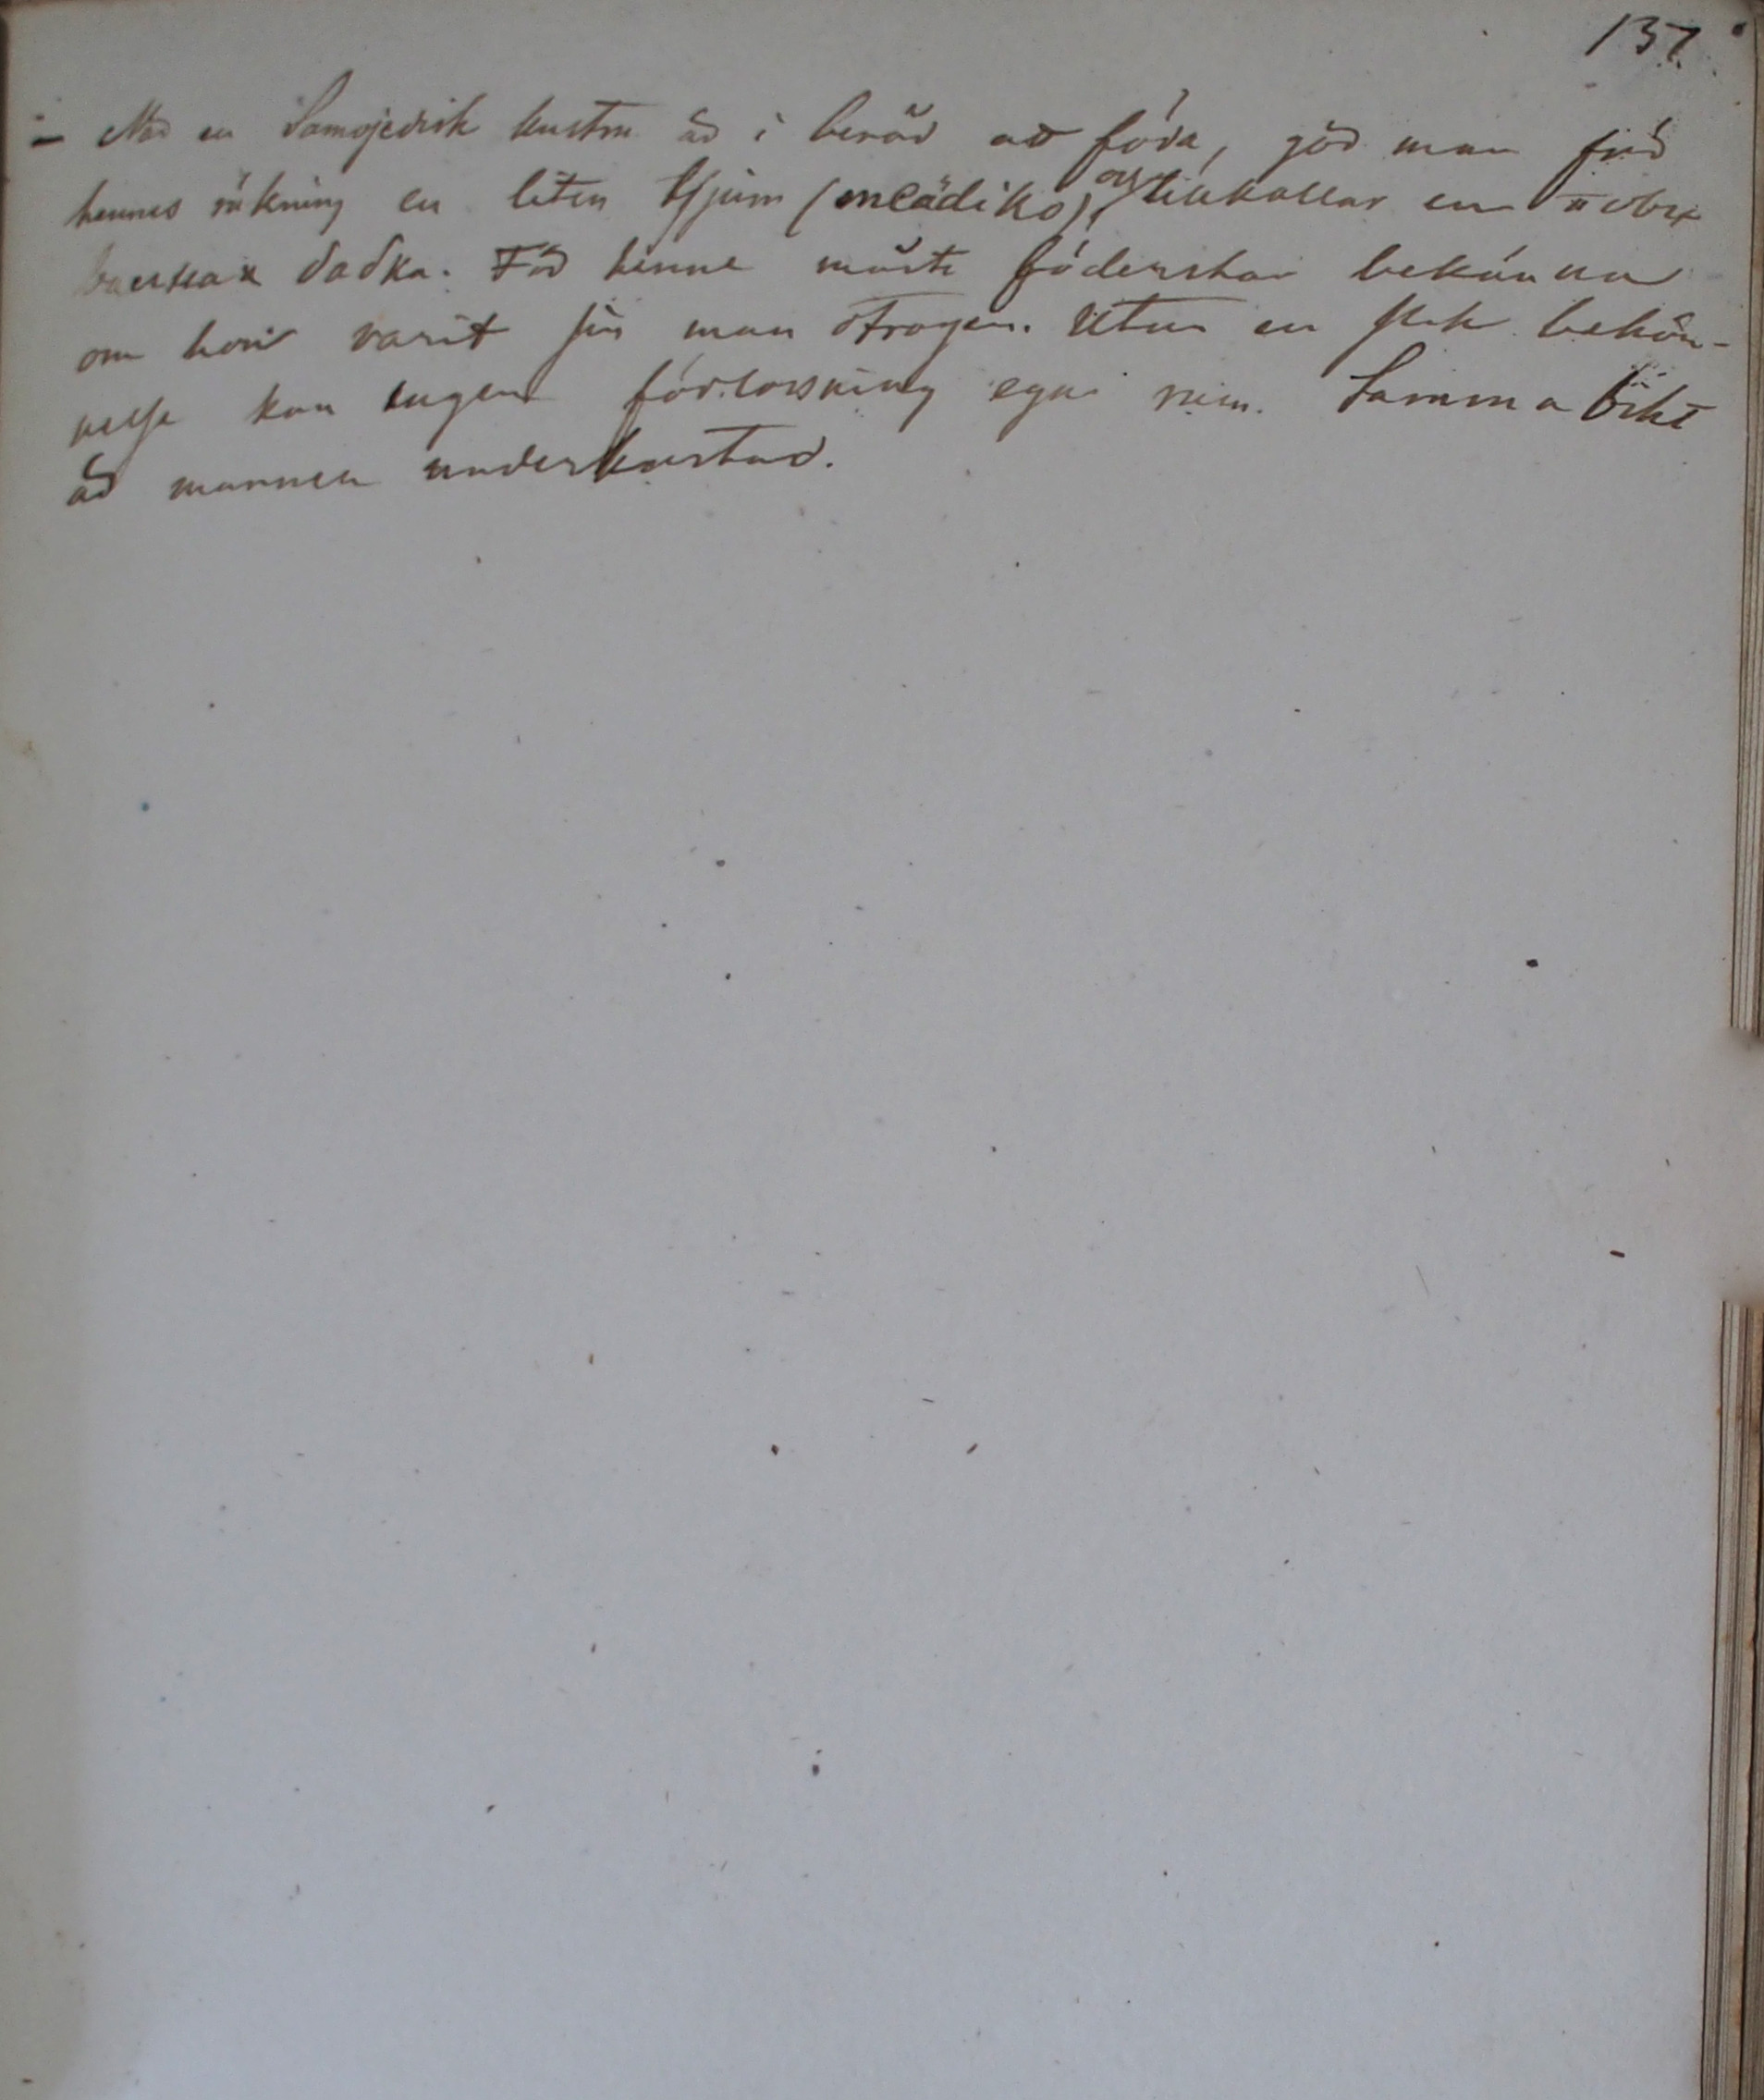 137.
– När en Samojedisk hustru är i beråd att föda, gör man för
hennes räkning en liten tjum (mEädiko), och tillkallar en
бабка. För henne måste föderskan bekänna
om hon varit sin man otrogen. Utan en slik bekän-
nelse kan ingen förlossning ega rum. Samma bikt
är mannen underkastad.